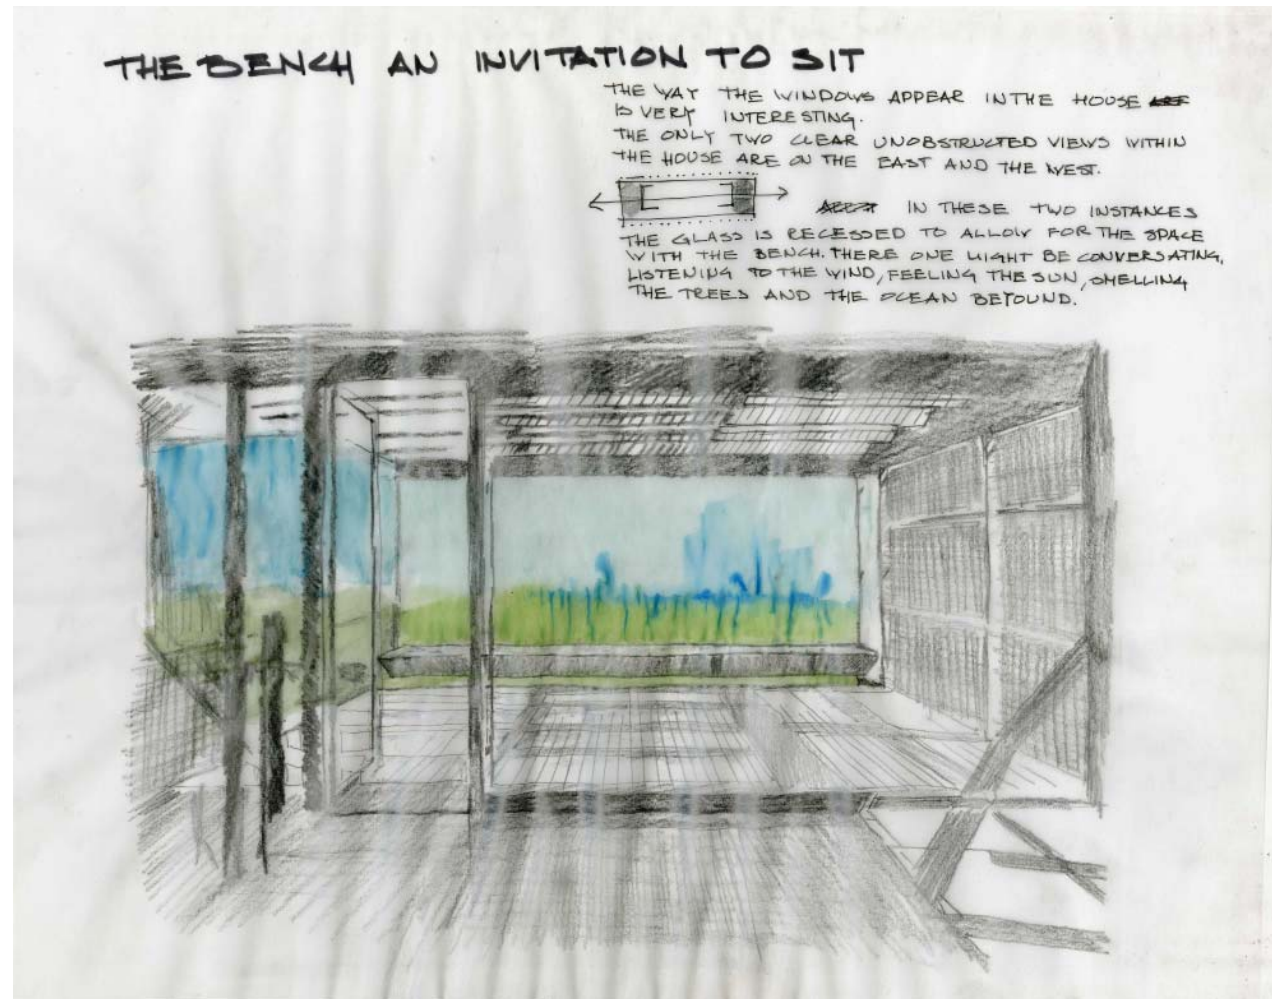 THE BENCH AN INVITATION TO SIT
THE WAY THE WINDOWS APPEAR IN THE HOUSE ARE
IS VERY INTERESTING.
THE ONLY TWO CLEAR UNOBSTRUCTED VIEWS WITHIN
THE HOUSE ARE ON THE EAST AND THE WEST.
IN THESE TWO INSTANCES
THE GLASS IS RECESSED TO ALLOW FOR THE SPACE
WITH THE BENCH. THERE ONE MIGHT BE CONVERSATING,
LISTENING TO THE WIND, FEELING THE SUN, SMELLING
THE TREES AND THE OCEAN BEYOUND.